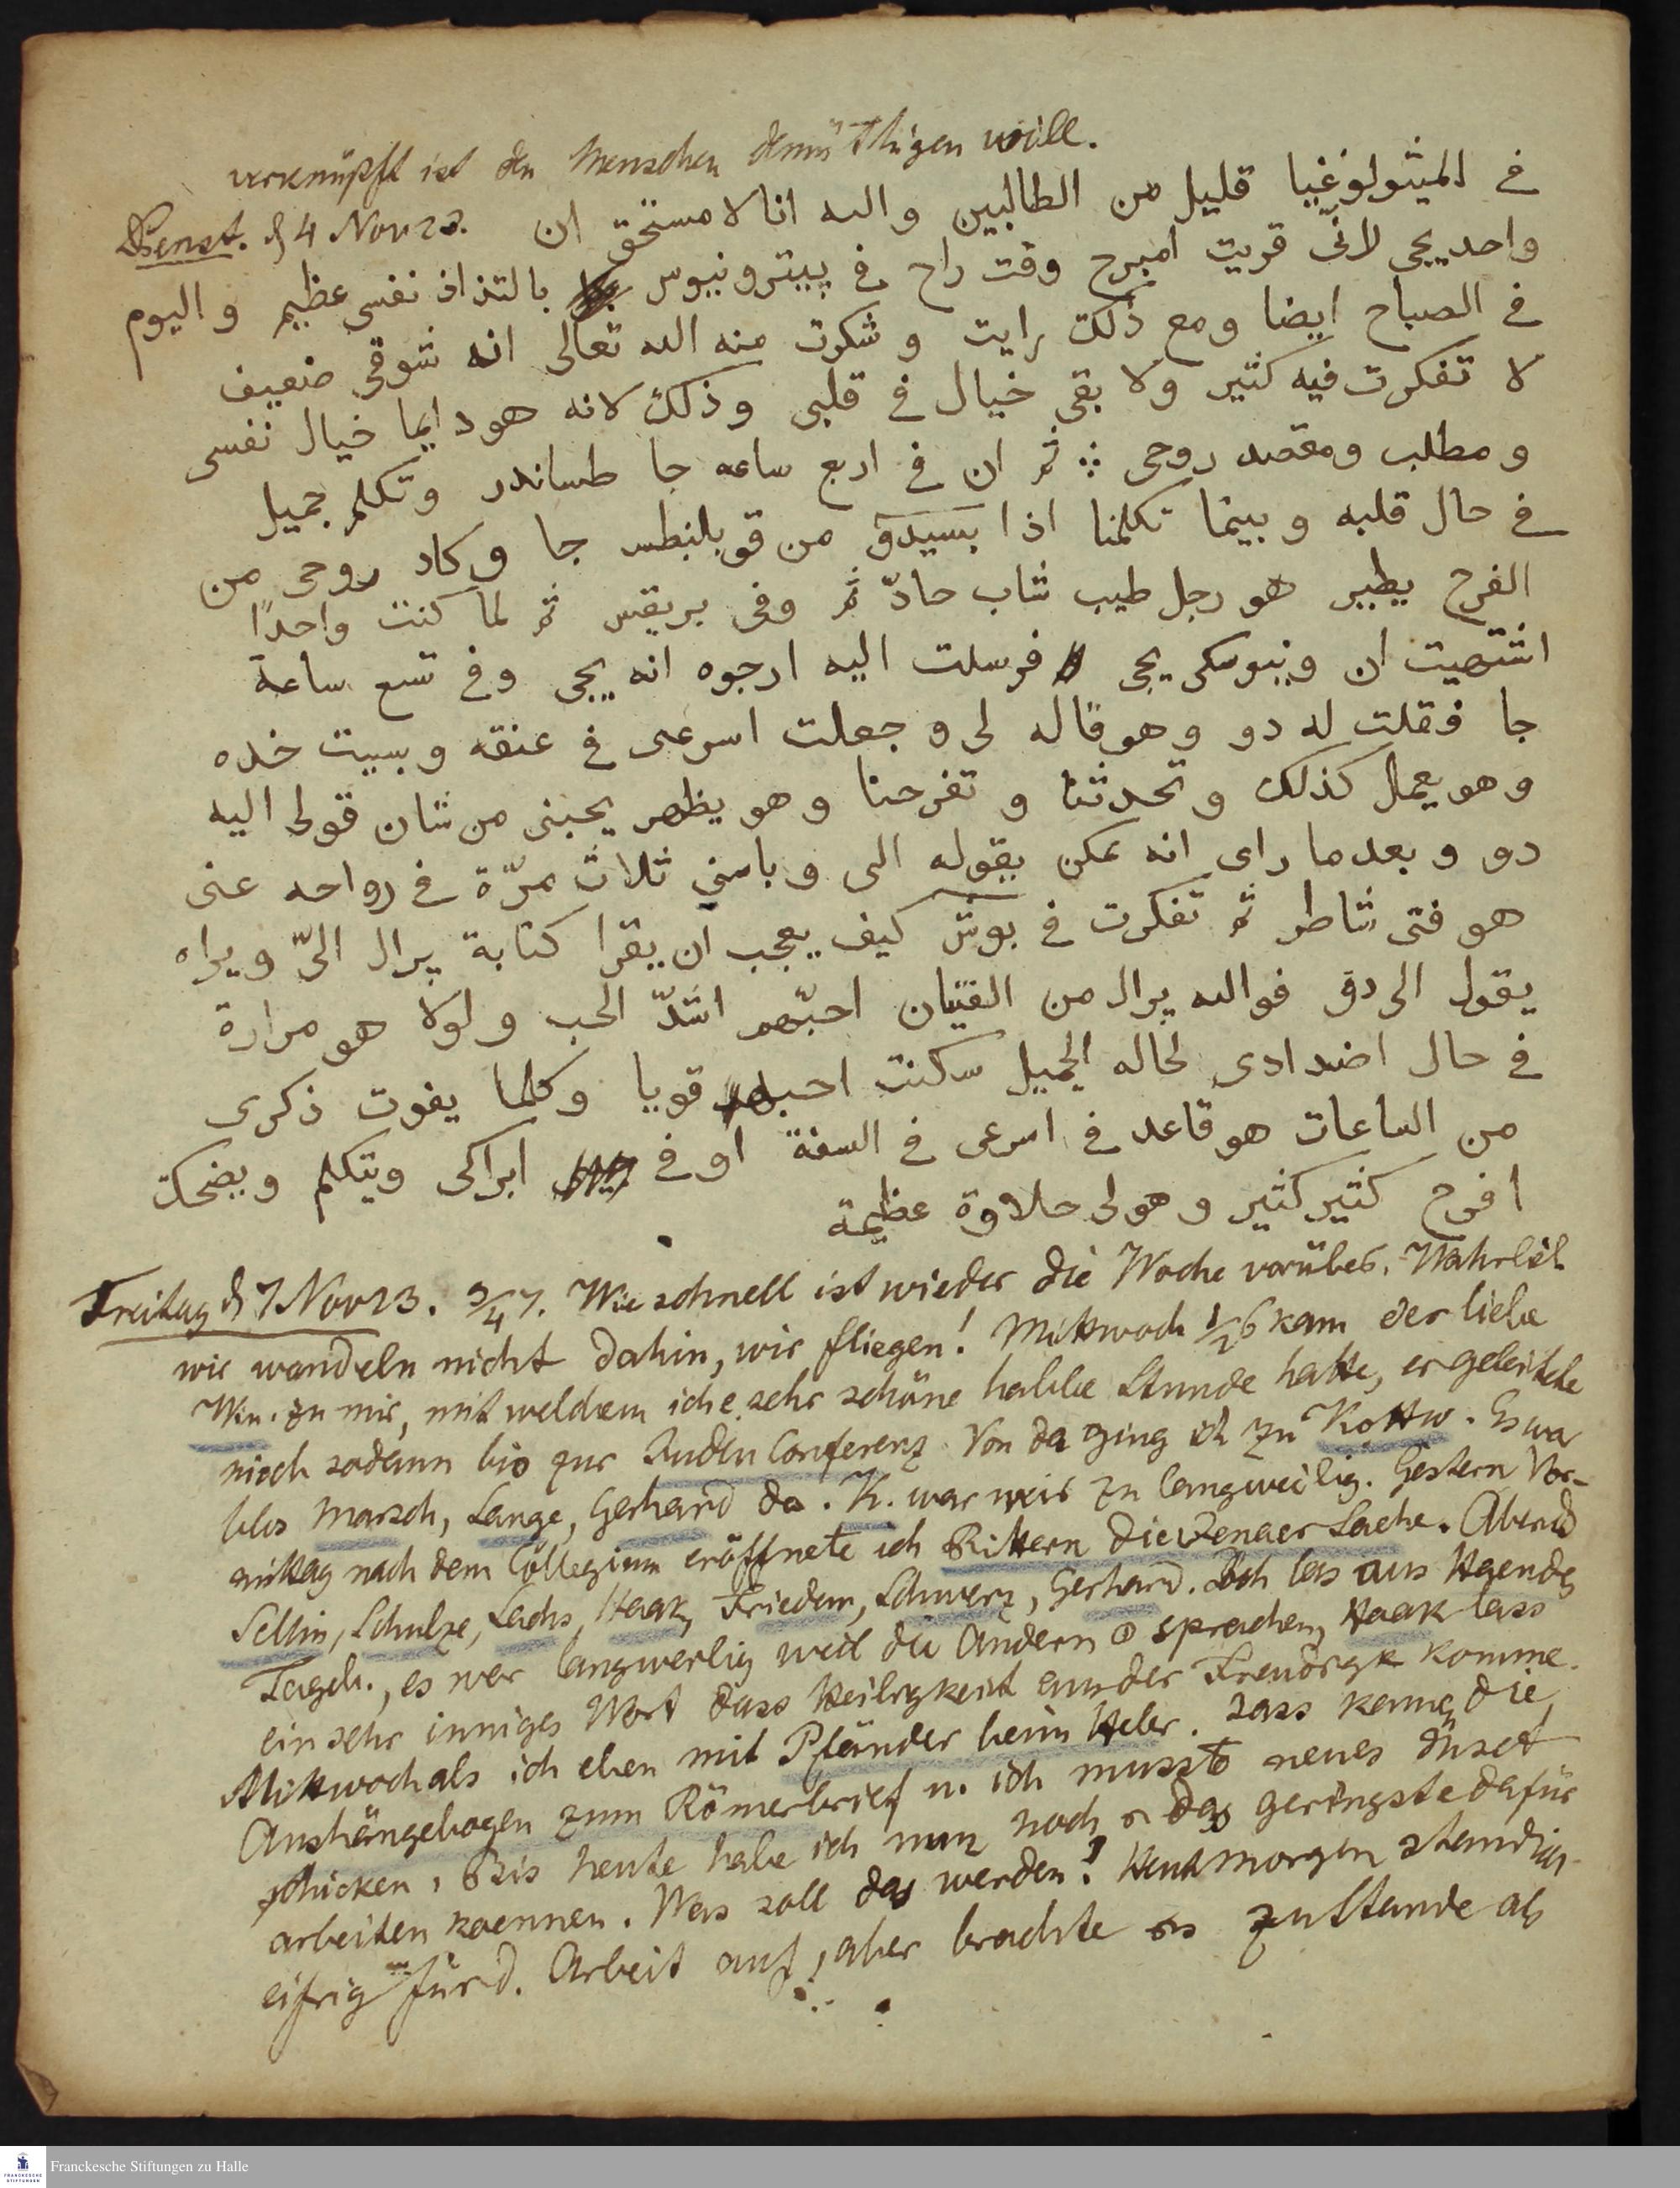 verknüpft ist den Menschen demüthigen will.
Dienst. d 4 Nov 23. في الميثولوغيا قليل من الطالبين والله انا لا مستحق ان
واحد يجي لانّي قريت امبرح وقت راح في پيترونيوس بالتذاذ نفسي عظيم واليوم
في الصباح ايضا ومع ذلك رايت وشكرت منه الله تعالى انه شوقي ضعيف
لا تفكرت فيه كثير ولا بقى خيال في قلبي وذلك لانه هو دايما خيال نفسي
ومطلب ومقصد روحي ثم ان في اربع ساعه جا طساندر وتكلم جميل
في حال قلبه وبينما تكلمنا اذا بسيدو من قوبلنطس جا وكاد روحي من
الفرح يطير هو رجل طيب شاب حادّ ثم وفي بريقس ثم لما كنت واحدًا
اشتهيت ان وينوسكي يجي فرسلت اليه ارجوه انه يجي وفي تسع ساعة
جا فقلت له دو وهو قاله لي وجعلت اسرعى في عنقه وبسيت خده
وهو يعمل كذلك وتحدثنا وتفرحنا وهو يظهر يحبني من شان قولي اليه
دو وبعدما راى انه يمكن يقوله الى وباسني ثلاث مرّة في رواحه عني
هو فتى شاطر ثم تفكرت في بوش كيف يعجب ان يقرا كتابة يرال الىّ ويراه
يقول الى دو فوالله يرال من الفتيان احبّهم اشدّ الحب ولولا هو مرارة
في حال اضدادى لحاله الجميل سكنت احبه قويا وكلما يفوت ذكرى
من الساعات هو قاعد في اسرعى في السفة او في ابراكى ويتكلم ويضحك
افرح كثير كثير وهو لى حلاوة عظيمة
Freitag d 7 Nov 23. 3/4 7. Wie schnell ist wieder die Woche vorüber. Wahrlich
wir wandeln nicht dahin, wir fliegen! Mittwoch 1/2 6 kam der liebe
Win. zu mir, mit welchem ich e. sehr schöne halbe Stunde hatte, er geleitete
mich sodann bis zur Juden Conferenz. Von da ging ich zu Kottw. Es war
blos Marsch, Lange, Gerhard da. K. war mir zu langweilig. Gestern Vor-
mittag nach dem Collegium eröffnete ich Rittern die Jenaer Sache. Abend
Sellin, Schulze, Lachs, Haak, Friedem, Schwerz, Gerhard. Ich las aus Haendes
Tageb., es war langweilig weil die Andern sprachen, Haak lass
ein sehr inniges Wort dass Heiligkeit aus der Freudigk komme.
Mittwoch als ich eben mit Pfländer beim Hebr. sass kamen die
Aushängebogen zum Römerbrief u. ich musste neues Mset
schicken, Bis heute habe ich nun noch das geringste dafür
arbeiten koennen. Was soll das werden? Heut morgen stand ich
eifrig für d. Arbeit auf, aber brachte zu Stande als
Franckesche Stiftungen zu Halle